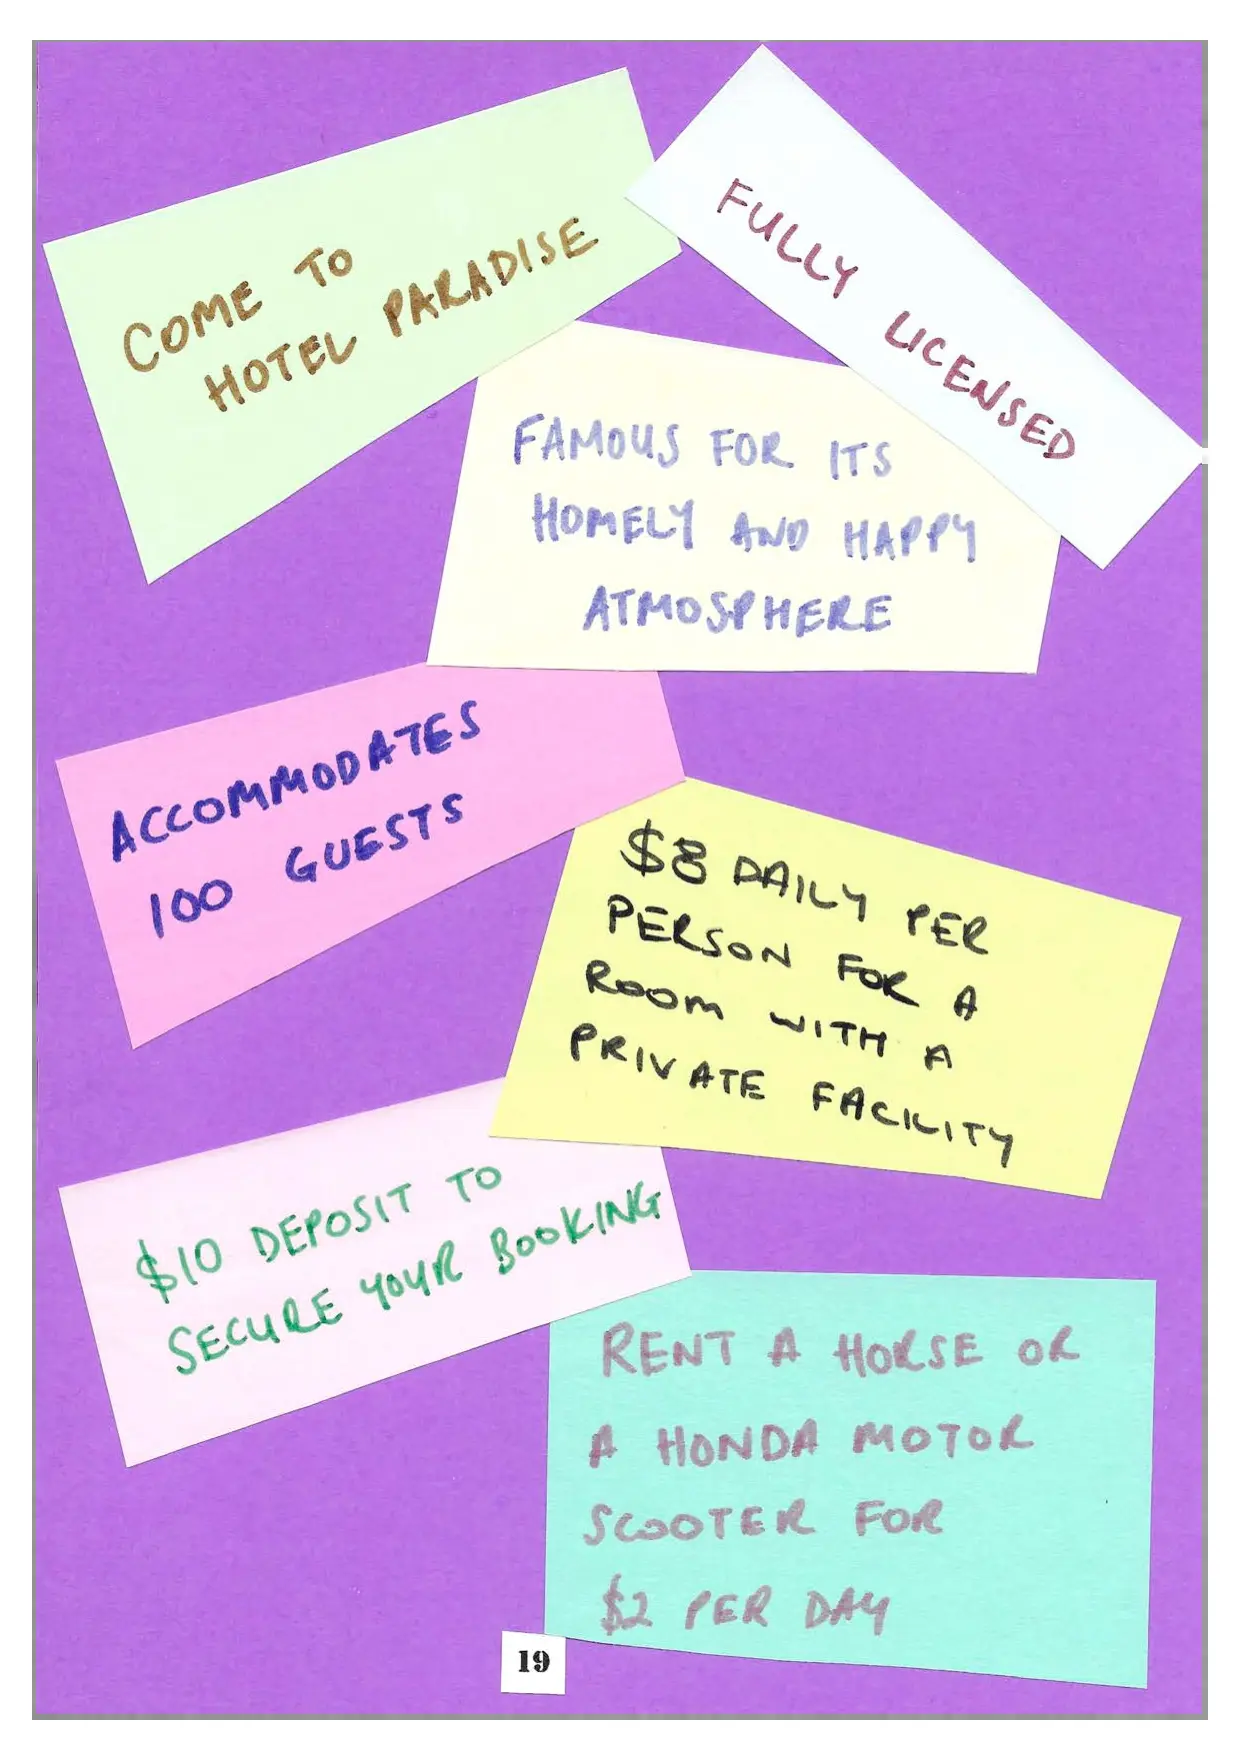 COME TO
HOTEL PARADISE
FULLY LICENSED
FAMOUS FOR ITS
HOMELY AND HAPPY
ATMOSPHERE
ACCOMMODATES
100 GUESTS
$8 DAILY PER
PERSON FOR A
ROOM WITH A
PRIVATE FACILITY
$10 DEPOSIT TO
SECURE YOUR BOOKING
RENT A HORSE OR
A HONDA MOTOR
SCOOTER FOR
$2 PER DAY
19